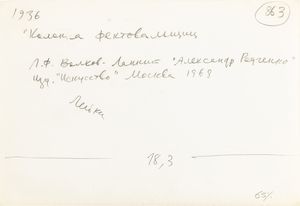 1936
863
"Колонна фектовальщиц
Л.Ф. Волков-Ланнит "Александр Родченко"
изд. "Искусство" Москва 1968
Лейка
18,3